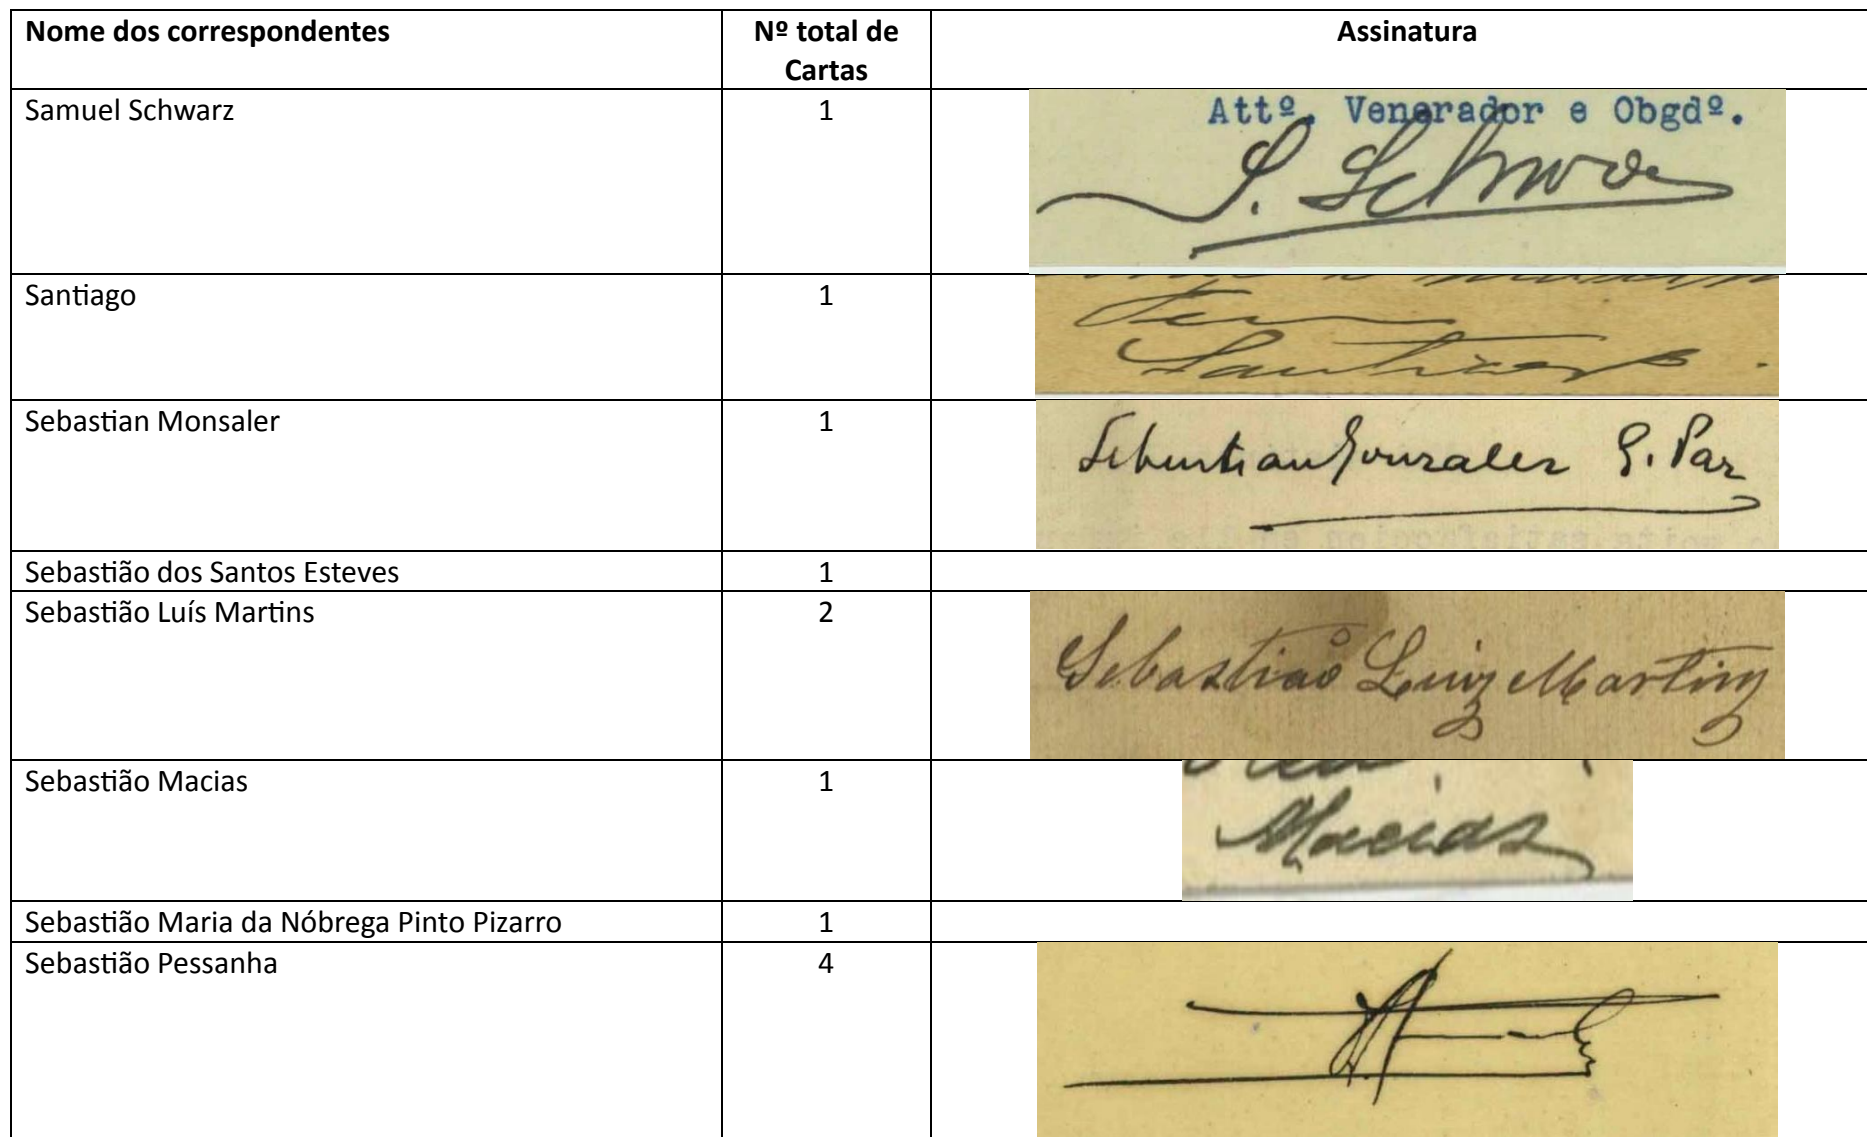 Nome dos correspondentes
Nº total de
Cartas
Assinatura
Samuel Schwarz
1
Attº. Venerador e Obgdº.
S. Schwarz
Santiago
1
Santiago
Sebastian Monsaler
1
Sebastian Gonzalez G. Paz
Sebastião dos Santos Esteves
1
Sebastião Luís Martins
2
Sebastião Luiz Martins
Sebastião Macias
1
Macias
Sebastião Maria da Nóbrega Pinto Pizarro
1
Sebastião Pessanha
4